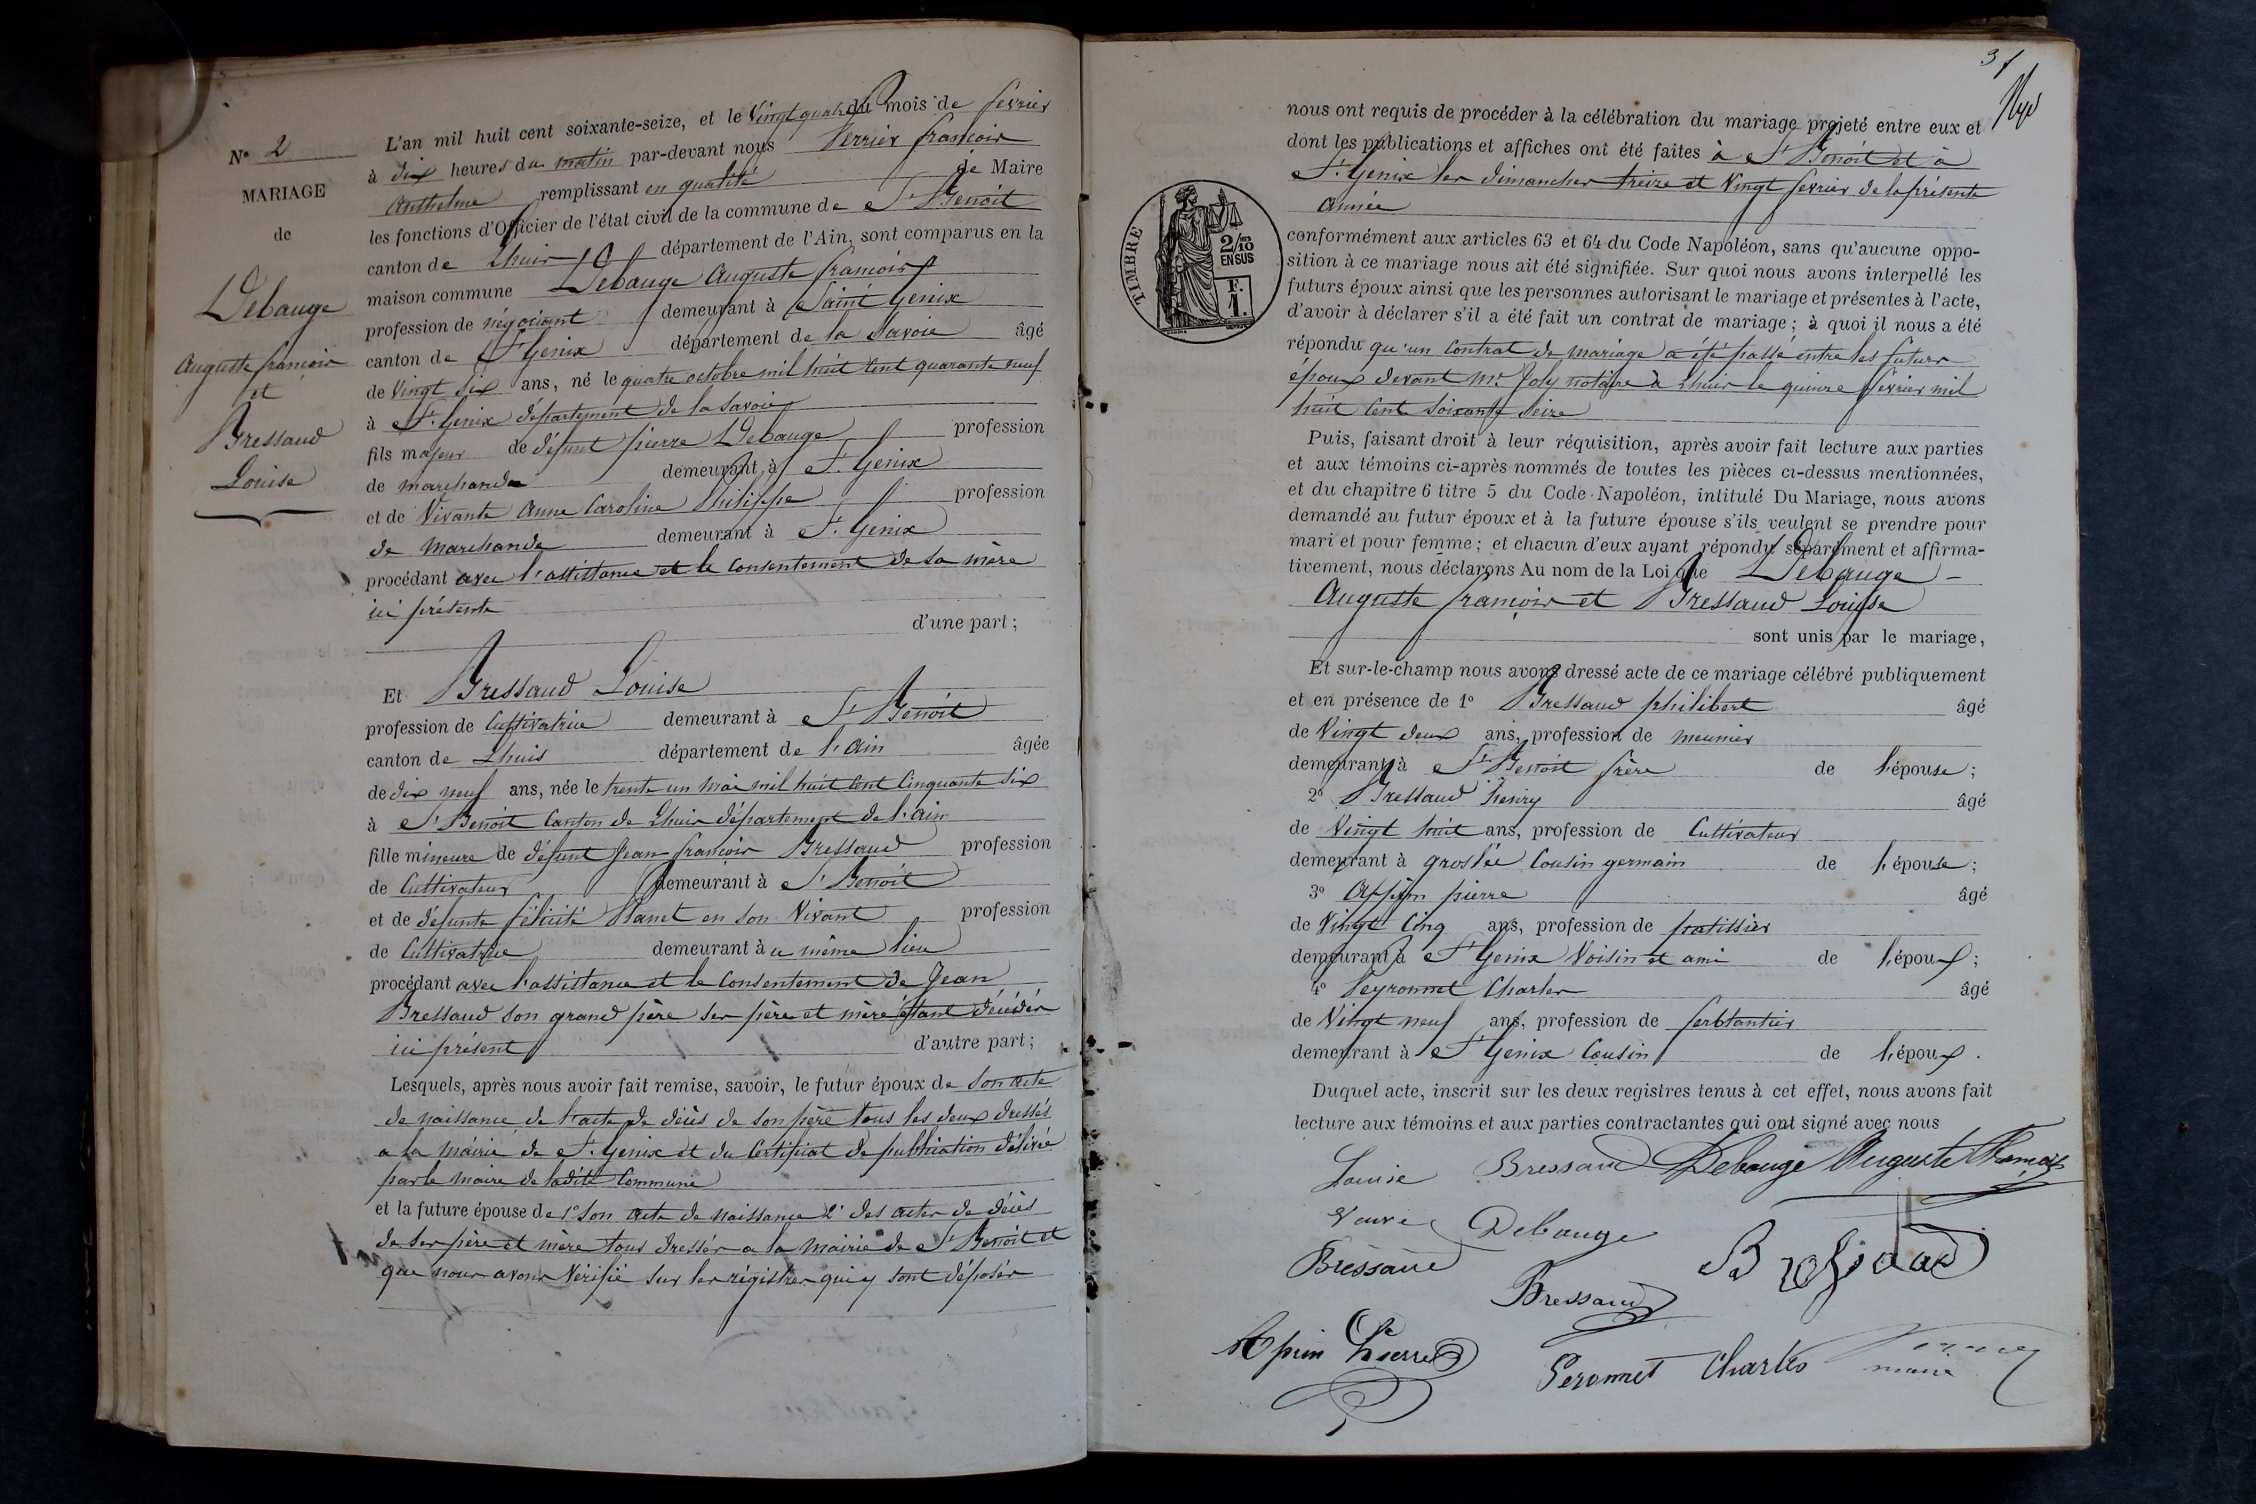 N° 2
MARIAGE
de
Debauge
Auguste françois
et
Bressaud
Louise
L'an mil huit cent soixante-seize, et le Vingt quatre du mois de février
à dix heures du matin par-devant nous Verrier françois
Anthelme remplissant en qualité de Maire
les fonctions d'Officier de l'état civil de la commune de St Benoit
canton de Lhuis département de l'Ain, sont comparus en la
maison commune Debauge Auguste françois
profession de négociant demeurant à Saint Genix
canton de St Genix département de la Savoie âgé
de Vingt six ans, né le quatre octobre mil huit cent quarante neuf
à St Genix département de la Savoie
fils majeur de défunt pierre Debauge profession
de marchand demeurant à St Genix
et de Vivante Anne Caroline Philippe profession
de Marchande demeurant à St Genix
procédant avec l'assistance et le consentement de sa mère
ici présente
d'une part;
Et Bressaud Louise
profession de Cultivatrice demeurant à St Benoit
canton de Lhuis département de l'ain âgée
de dix neuf ans, née le trente un mai mil huit cent Cinquante six
à St Benoit Canton de Lhuis département de l'ain
fille mineure de défunt Jean françois Bressaud profession
de Cultivateur demeurant à St Benoit
et de défunte félicité en son Vivant profession
de Cultivatrice demeurant à u même lieu
procédant avec l'assistance et le Consentement de Jean
Bressaud son grand père ses père et mère étant décédés
ici présent d'autre part;
Lesquels, après nous avoir fait remise, savoir, le futur époux de son acte
de naissance de l'acte de décès de son père tous les deux dressés
a la mairie de St Genix et du Certificat de publication délivré
par le maire de ladite Commune
et la future épouse de 1° son acte de naissance 2° des actes de décès
de ses père et mère tous dressés a la mairie de St Benoit et
que nous avons Vérifié sur les régistres qui y sont déposés
31
nous ont requis de procéder à la célébration du mariage projeté entre eux et
dont les publications et affiches ont été faites à St Benoit et à
St Genix les dimanches treize et Vingt février de la présente
Année
TIMBRE
2/10
EN SUS
F.
1.
conformément aux articles 63 et 64 du Code Napoléon, sans qu'aucune oppo-
sition à ce mariage nous ait été signifiée. Sur quoi nous avons interpellé les
futurs époux ainsi que les personnes autorisant le mariage et présentes à l'acte,
d'avoir à déclarer s'il a été fait un contrat de mariage; à quoi il nous a été
répondu qu'un Contrat de mariage a été passé entre les futurs
époux devant Me Joly notaire à Lhuis le quinze février mil
huit Cent soixante seize
Puis, faisant droit à leur réquisition, après avoir fait lecture aux parties
et aux témoins ci-après nommés de toutes les pièces ci-dessus mentionnées,
et du chapitre 6 titre 5 du Code Napoléon, intitulé Du Mariage, nous avons
demandé au futur époux et à la future épouse s'ils veulent se prendre pour
mari et pour femme; et chacun d'eux ayant répondu séparément et affirma-
tivement, nous déclarons Au nom de la Loi que Debauge
Auguste françois et Bressaud Louise
sont unis par le mariage,
Et sur-le-champ nous avons dressé acte de ce mariage célébré publiquement
et en présence de 1° Bressaud philibert âgé
de Vingt deux ans, profession de meunier
demeurant à St Benoit frère de l'épouse;
2° Bressaud henry âgé
de Vingt huit ans, profession de Cultivateur
demeurant à groslée Cousin germain de l'épouse;
3° Appin pierre âgé
de Vingt Cinq ans, profession de patissier
demeurant à St Genix Voisin et ami de l'époux;
4° Peyronnet Charles âgé
de Vingt neuf ans, profession de ferblantier
demeurant à St Genix Cousin de l'époux.
Duquel acte, inscrit sur les deux registres tenus à cet effet, nous avons fait
lecture aux témoins et aux parties contractantes qui ont signé avec nous
Louise Bressaud Debauge Auguste
Veuve Debauge
Bressaud
Bressaud
Apin Pierre
Peronnet Charles
maire